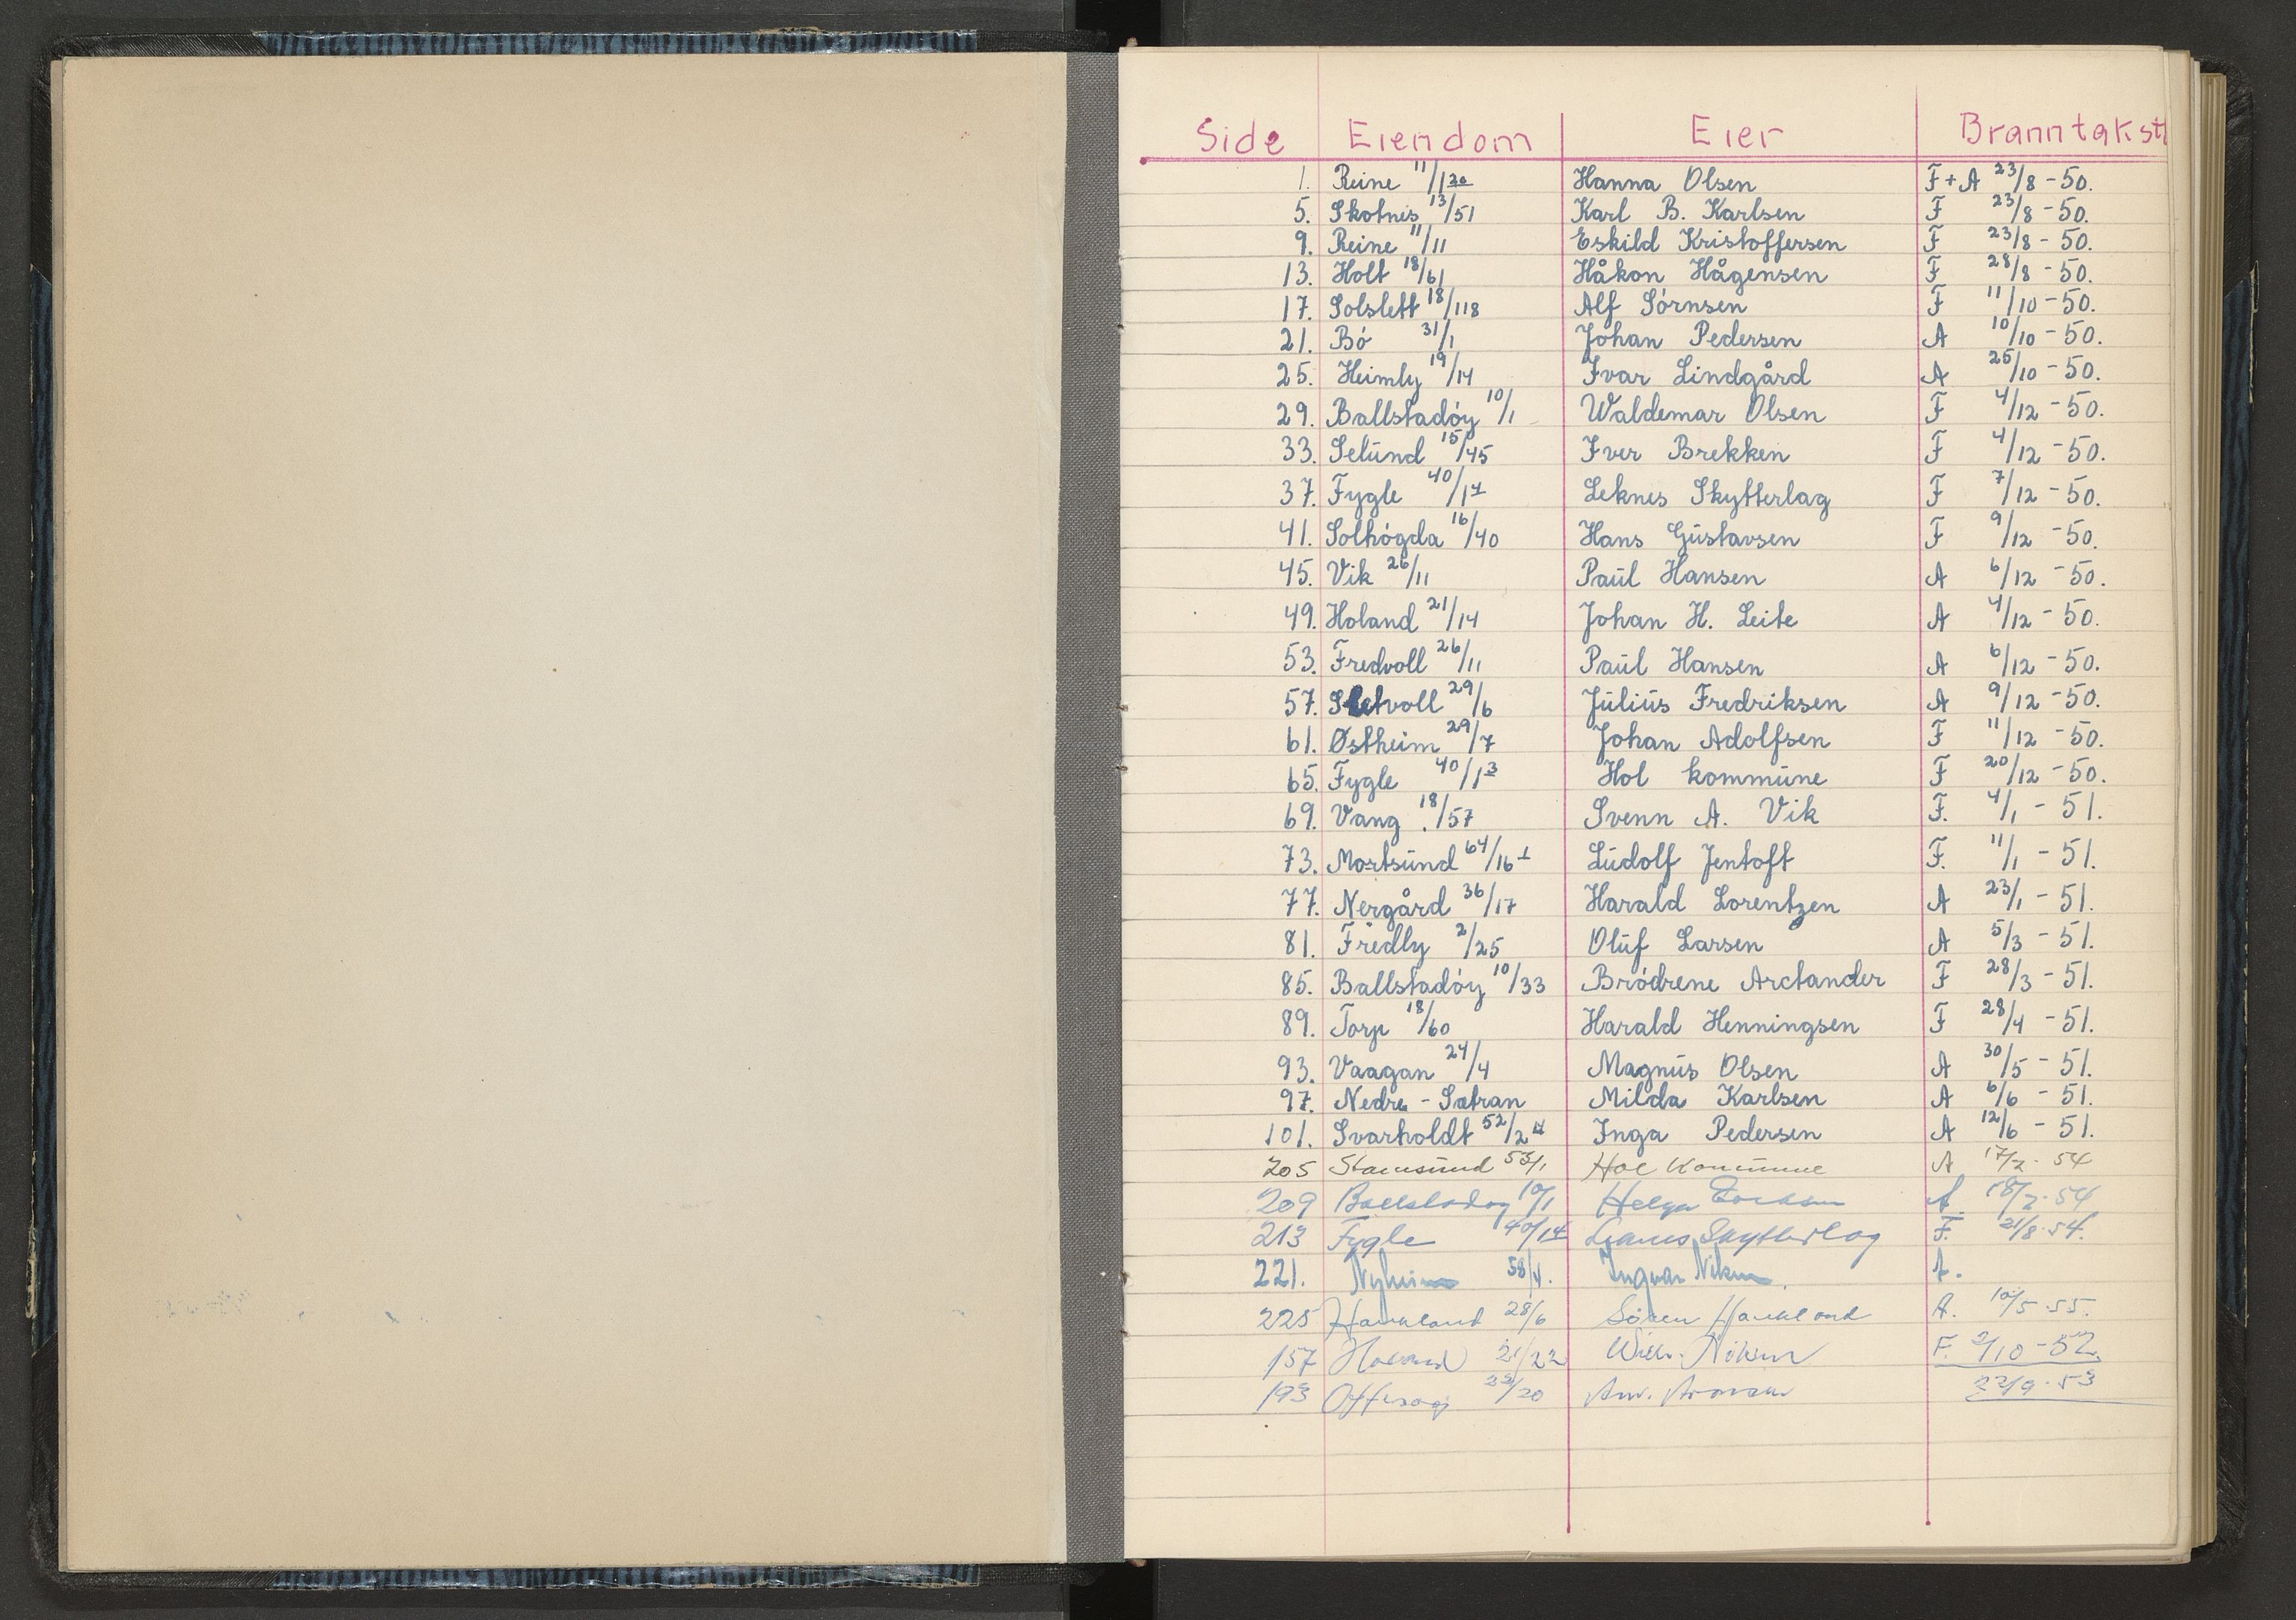 Side Eiendom Eier Branntakst
1. Reine 11/1 20 Hanna Olsen F+A 23/8-50.
5. Skotnes 13/51 Karl B. Karlsen F 23/8-50.
9. Reine 11/11 Eskild Kristoffersen F 23/8-50.
13. Holt 18/61 Håkon Hågensen F 28/8-50.
17. Solslett 18/118 Alf Sórnsen F 11/10-50.
21. Bó 31/1 Johan Pedersen A 10/10-50.
25. Heimly 19/14 Ivar Lindgård A 26/10-50.
29. Ballstadóy 10/1 Waldemar Olsen F 4/12-50.
33. Selund 15/45 Iver Brekken F 4/12-50.
37. Fygle 40/14 Leknes Skytterlag F 7/12-50.
41. Solhógda 16/40 Hans Gustavsen F 9/12-50.
45. Vik 26/11 Paul Hansen A 6/12-50.
49. Holand 21/14 Johan H. Leite A 4/12-50.
53. Fredvoll 26/11 Paul Hansen A 6/12-50.
57. Sletvoll 29/6 Julius Fredriksen A 9/12-50.
61. Østheim 29/7 Johan Adolfsen F 11/12-50.
65. Fygle 40/13 Hol kommune F 20/12-50.
69. Vang 18/57 Svenn A. Vik F. 4/1-51.
73. Mortsund 64/16 1 Ludolf Jentoft F. 11/1-51.
77. Nergård 36/17 Harald Lorentzen A 23/1-51.
81. Fredly 2/25 Oluf Larsen A 5/3-51.
85. Ballstadóy 10/33 Bródrene Arctander F 28/3-51.
89. Torp 18/60 Harald Henningsen F 28/4-51.
93. Vaagan 24/4 Magnus Olsen A 30/5-51.
97. Nedre-Satran Milda Karlsen A 6/6-51.
101. Svarholdt 52/2 4 Inga Pedersen A 12/6-51.
205 Stamsund 53/1 Hol Kommune A 17/2-54
209 Ballstadøy 10/1 Helga A. 18/2-54
213 Fygle 40/14 Leknes Skytterlag F. 21/8-54.
221. Nyheim 58/4. Ingvar A.
225 Haukland 28/6 Søren Haukland A. 10/5-55.
157 Holand 21/22 F. 2/10-52
193 Offersøy 22/20 22/9-53